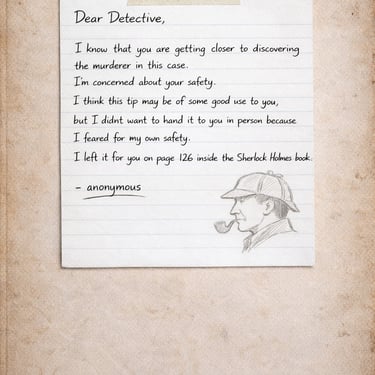 Dear Detective,
I know that you are getting closer to discovering
the murderer in this case.
I'm concerned about your safety.
I think this tip may be of some good use to you,
but I didnt want to hand it to you in person because
I feared for my own safety.
I left it for you on page 126 inside the Sherlock Holmes book.
- anonymous